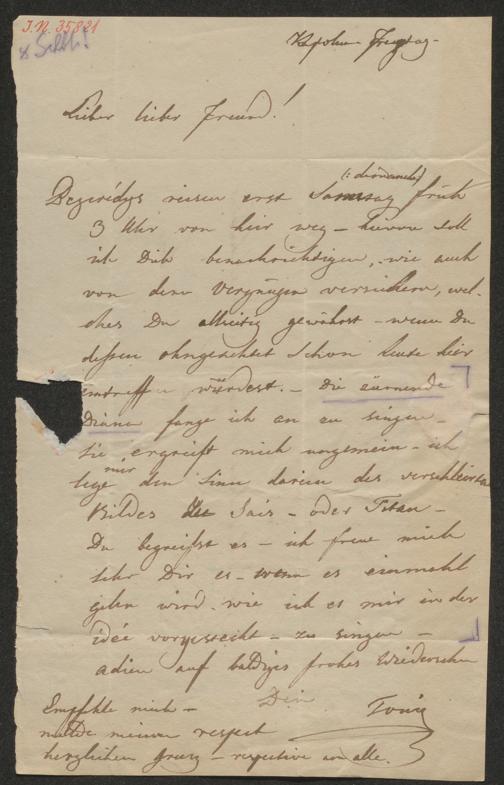 I.N. 35821
Freytag
Lieber lieber Freund!
Bezerédys reisen erst Samstag früh
3 Uhr von hier weg – hievon soll
ich Dich benachrichtigen, wie auch
von dem Vergnügen versichern, wel-
ches Du allseitig gewährst – wenn Du
dessen ohngeachtet schon heute hier
eintreffen würdest. – Die zürnende
Diana fange ich an zu singen –
sie ergreift mich ungemein – ich
lege mir den Sinn darin des verschleierten
Bildes zu Sais – oder Titan –
Du begreifst es – ich freue mich
sehr Dir es – wenn es einmahl
gehn wird wie ich es mir in der
idée vorgesteckt – zu singen –
adieu auf baldiges frohes Wiedersehn
Dein
Empfehle mich –
melde meinen respect
herzlichen Gruss – respective an alle.